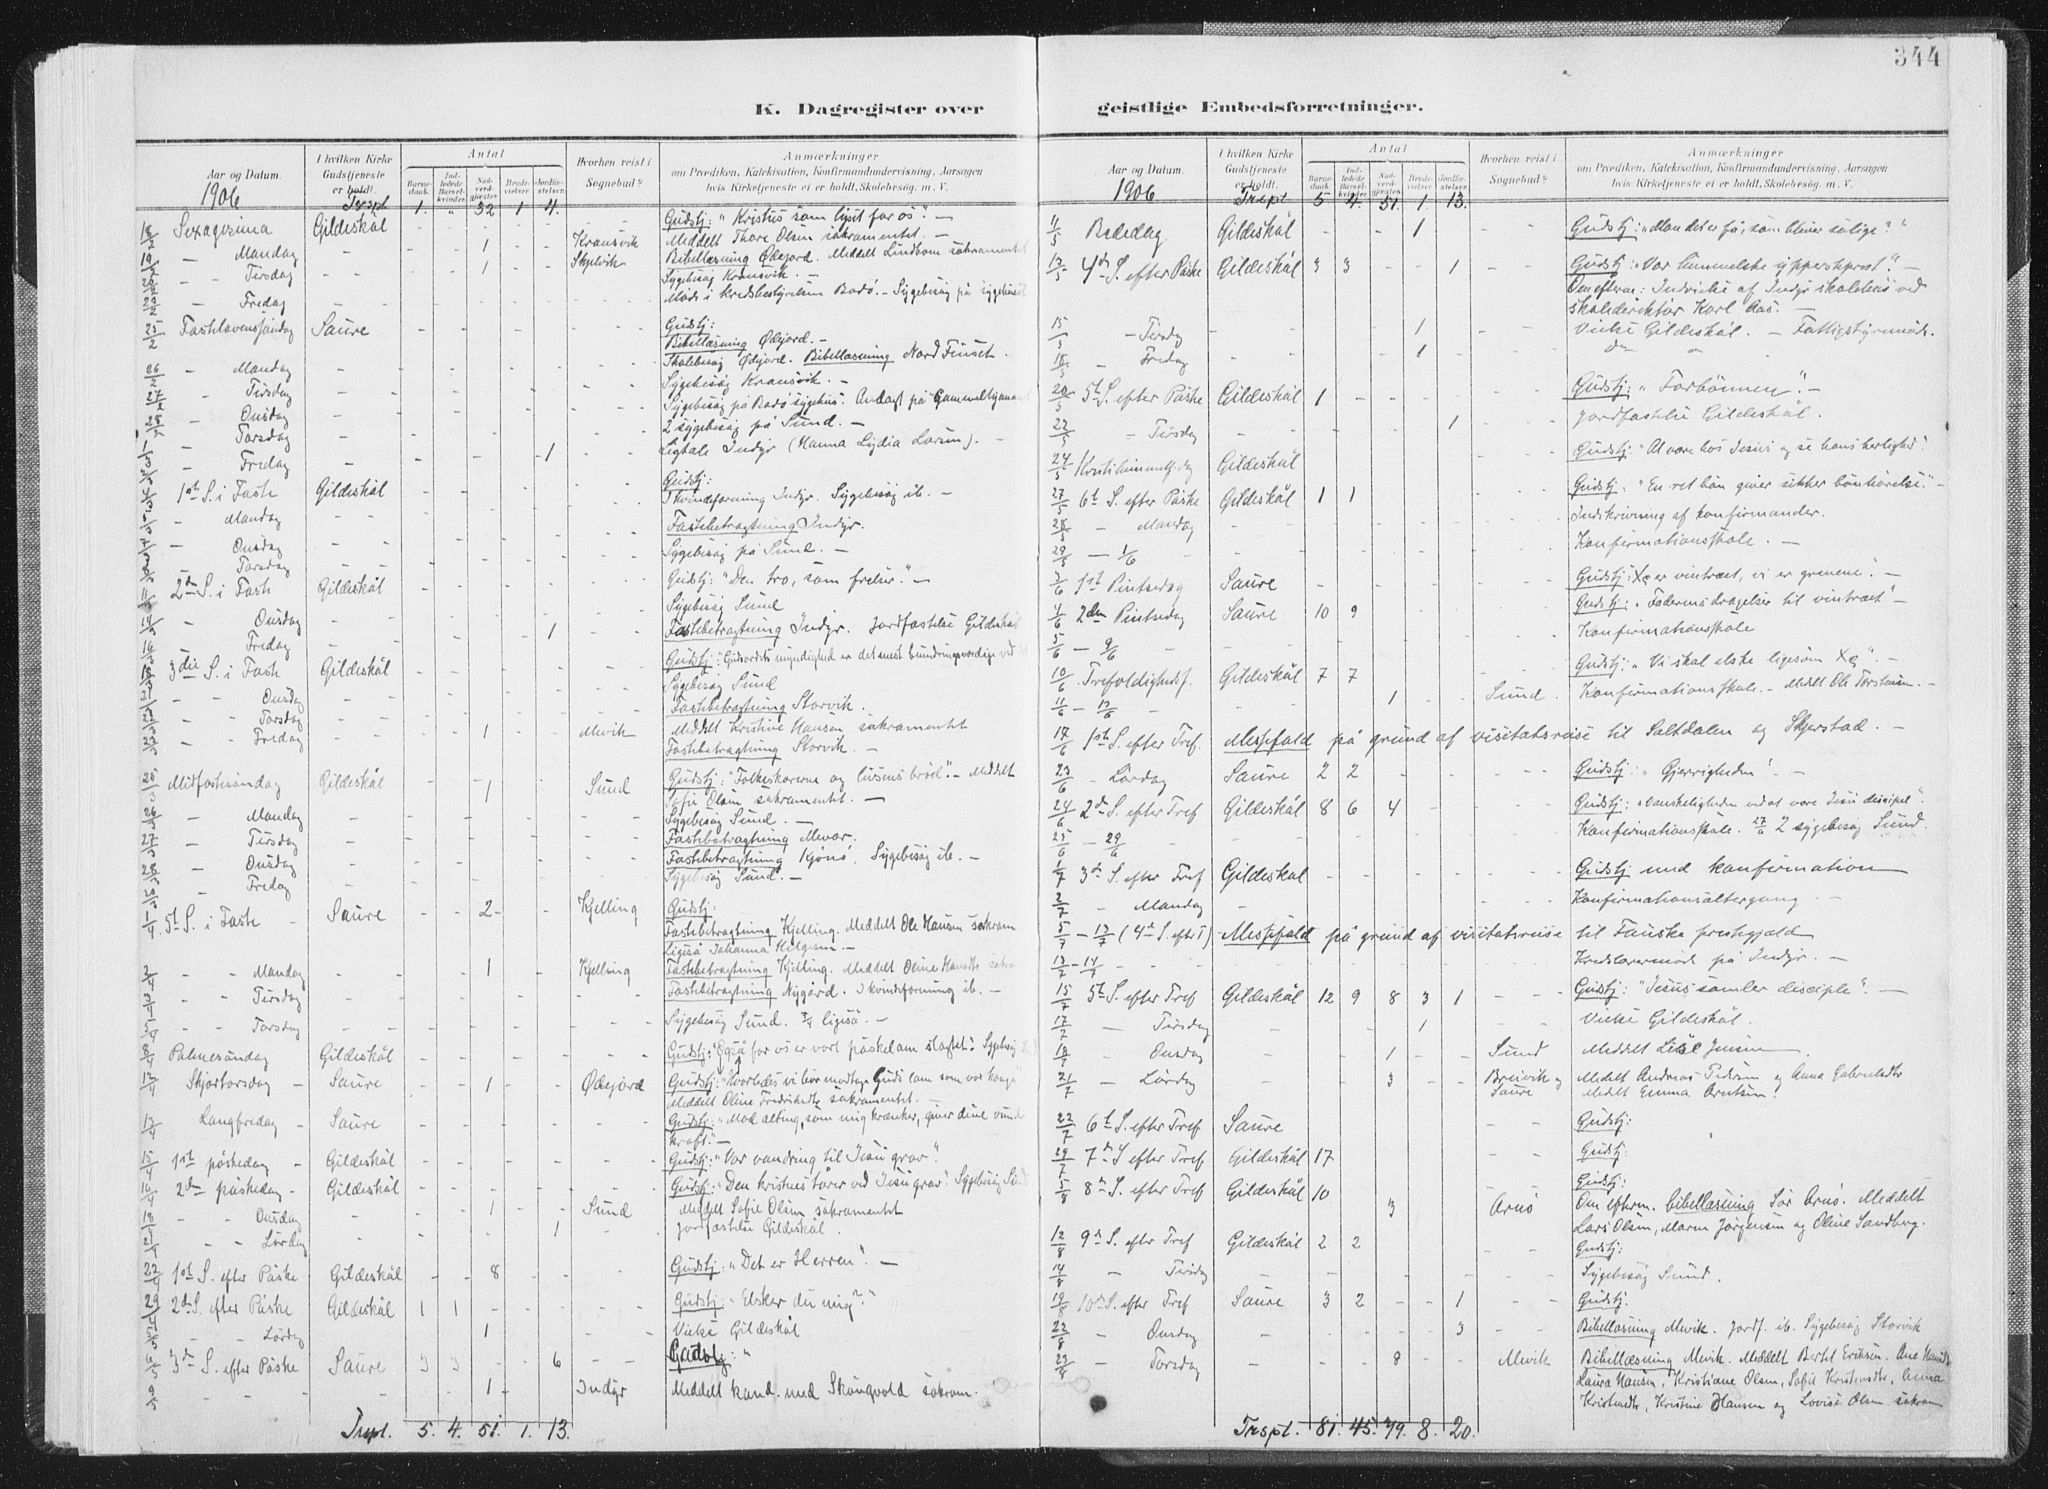 344
K. Dagregister over
Aar og Datum.
I hvilken Kirke Gudstjeneste er holdt.
Antal
Barnedaab.
Indledede Barselkvinder.
Nadverdgjester.
Brudevielser.
Jordfæstelser.
Hvorhen reist i Sognebud?
Anmærkninger
om Prædiken, Katekisation, Konfirmandundervisning, Aarsagen
hvis Kirketjeneste ei er holdt, Skolebesøg m. V.
1906 Trspt. 1. " 32 1 4.
18/2 Sexagesima Gildeskål Gudstj: "Kristus som lyset for os". —
19/2 – Mandag 1 Kransvik Meddelt Thore Olsen sakramentet. —
– Tirsdag 1 Skjelvik Bibellæsning Ødejord. Meddelt Lindbom sakramentet
Sygebesøg Kransvik. —
– Fredag Møde i Kredsbestyrelsen Bodø. – Sygebesøg på sygehuset
25/2 Fastelavenssøndag Saure Gudstj:
Bibellæsning Ødejord. —
26/2 – Mandag Skolebesøg Ødejord. Bibellæsning Nord Finset.
27/2 – Tirsdag Sygebesøg Kransvik. —
28/2 – Onsdag Sygebesøg på Bodø sygehus. Andagt på
– Torsdag 2 sygebesøg på Sund. —
– Fredag 1 Ligtale Indyr (Hanna Lydia Larsen). –
1st S. i Faste Gildeskål Gudstj:
– Mandag I kvindeforening Indyr. Sygebesøg ib. —
– Onsdag Fastebetragtning Indyr.
– Torsdag Sygebesøg på Sund. —
2den S. i Faste Gildeskål Gudstj: "Den tro, som frelser." —
Sygebesøg Sund
– Onsdag
– Fredag 1 Fastebetragtning Indyr. Jordfæstelse Gildeskål
3die S. i Faste Gildeskål Gudstj: "Gudsordets myndighed er det mest
Sygebesøg Sund
– Onsdag
– Torsdag Fastebetragtning Storvik.
– Fredag 1 Mevik Meddelt Kristine Hansen sakramentet
Fastebetragtning Storvik. —
25/3 Midfastesøndag Gildeskål 1 Sund Gudstj: "Folkeskarerne og livsens brød". – Meddelt
Sofie Olsen sakramentet. —
26/3 – Mandag Sygebesøg Sund. —
27/3 – Tirsdag Fastebetragtning Mevær.
– Onsdag Fastebetragtning Kjønø. Sygebesøg ib. —
– Fredag Sygebesøg Sund. —
1/4 5t S. i Faste Saure 2 Kjelling Gudstj:
Fastebetragtning Kjelling. Meddelt Ole Hansen sakram
ligeså Johanna Helgesen. —
2/4 – Mandag 1 Kjelling Fastebetragtning Kjelling. Meddelt Oline
3/4 – Tirsdag Fastebetragtning Nygård. I kvindeforening ib. —
– Torsdag Sygebesøg Sund. 7/4 ligeså. —
8/4 Palmesøndag Gildeskål Gudstj: "Også for os er vort påskelam slagtet". Sygebesøg
12/4 Skjærtorsdag – Saure 1 Ødejord Gudstj: "Hvorledes vi bør modtage Guds lam som vor konge"
Meddelt Oline Fredriksdtr sakramentet. —
13/4 Langfredag – Saure Gudstj: "Mod alting, som mig krænker, giver dine vunder
kraft". —
15/4 1st påskedag – Gildeskål Gudstj: "Vor vandring til Jesu grav".
16/4 2den påskedag – Gildeskål Gudstj: "Den kristnes tårer ved Jesu grav". Sygebesøg Sund
18/4 – Onsdag 1 Sund Meddelt Sofie Olsen sakramentet
21/4 – Lørdag 1 Jordfæstelse Gildeskål.
22/4 1st S. efter Påske Gildeskål 8 Gudstj: "Det er Herren". —
29/4 2d S. efter Påske Gildeskål 1 1 Gudstj: "Elsker du mig?"
– Lørdag 1 Vielse Gildeskål
6/5 3de S. efter Påske Saure 3 3 6 Gudstj: "
9/5 1 Indyr Meddelt kand. med Skånqvold sakram.
Trspt. 5. 4. 51. 1. 13.
geistlige Embedsforretninger.
Aar og Datum.
I hvilken Kirke Gudstjeneste er holdt.
Antal
Barnedaab.
Indledede Barselkvinder.
Nadverdgjester.
Brudevielser.
Jordfæstelser.
Hvorhen reist i Sognebud?
Anmærkninger
om Prædiken, Katekisation, Konfirmandundervisning, Aarsagen
hvis Kirketjeneste ei er holdt, Skolebesøg m. V.
1906 Trspt 5 4. 51. 1 13.
11/5 Bededag Gildeskål 1 Gudstj: "Mon det er få, som bliver salige?"
13/5 4de S. efter Påske Gildeskål 3 3 1 Gudstj: "Vor himmelske ypperstepræst". —
Om efterm: Indvielse af Indyr skolehus ved
skoledirektør Karl Aas. —
15/5 – Tirsdag 1 Vielse Gildeskål. – Fattigstyremøde.
18/5 – Fredag 1 do "
20/5 5t S. efter Påske Gildeskål 1 Gudstj: "Forbønnen". —
22/5 – Tirsdag 1 Jordfæstelse Gildeskål.
24/5 Kristi himmelf. dag Gildeskål Gudstj: "At være hos Jesus og se hans herlighed".
27/5 6te S. efter Påske Gildeskål 1 1 Gudstj: "En ret bøn giver sikker bønhørelse". —
28/5 – Mandag Indskrivning af konfirmander.
29/5 – 1/6 Konfirmationsskole. —
3/6 1st Pintsedag Saure Gudstj: Xs er vintræet, vi er grenene". —
4/6 2den Pintsedag Saure 10 9 Gudstj: "Faderens dragelser til vintræet" —
5/6 – 9/6 Konfirmationsskole
10/6 Trefoldighedsf. Gildeskål 7 7 Gudstj: "Vi skal elske ligesom Xs". —
11/6 – 13/6 1 Sund. Konfirmationsskole. – Medelt Ole Torstensen. —
17/6 1st S. efter Tref. Messefald på grund af visitatsreise til Saltdalen og Skjerstad. —
23/6 – Lørdag Saure 2 2 Gudstj: "Gjerrigheden". —
24/6 2d S. efter Tref Gildeskål 8 6 4 Gudstj: "Vanskeligheden ved at være Jesu discipel".
25/6 – 29/6 Konfirmationsskole. 27/6 2 sygebesøg Sund.
1/7 3d S. efter Tref Gildeskål Gudstj med konfirmation
2/7 – Mandag Konfirmationsaltergang. —
5/7 – 13/7 (4de S. efter T) – Messefald på grund af visitatsreise til Fauske prestegjæld
13/7 – 14/7 Kredslærermøde på Indyr. —
15/7 5te S. efter Tref Gildeskål 12 9 8 3 1 Gudstj: "Jesus samler disciple". —
17/7 – Tirsdag 1 Vielse Gildeskål.
18/7 – Onsdag 1 Sund Meddelt Jensen.
21/7 – Lørdag 3 Breivik og Saure Medelt Andreas Pedersen og Anna Gabrielsdtr
Medelt Emma Arntsen.
22/7 6te S. efter Tref Saure Gudstj:
29/7 7de S efter Tref Gildeskål 17 Gudstj:
5/8 8de S. efter Tref Gildeskål 10 Gudstj:
3 Arnø Om efterm. bibellæsning Sør Arnø. Meddelt
Lars Olsen, Maren Jørgensen og Oline Sandberg.
12/8 9de S. efter Tref Gildeskål 2 2 Gudstj:
14/8 – Tirsdag Sygebesøg Sund.
19/8 10de S. efter Tref Saure 3 2 1 Gudstj.
22/8 – Onsdag 3 Bibellæsning Mevik. Jordf. ib. Sygebesøg Storvik
23/8 – Torsdag 8 Mevik Bibellæsning Mevik. Meddelt Bertel Eriksen. Ane
Laura Hansen, Kristiane Olsen, Sofie Kristensdtr, Anna
Kristensdtr, Kristine Hansen og Lovise Olsen sakram
Trspt. 81. 45. 79. 8. 20.